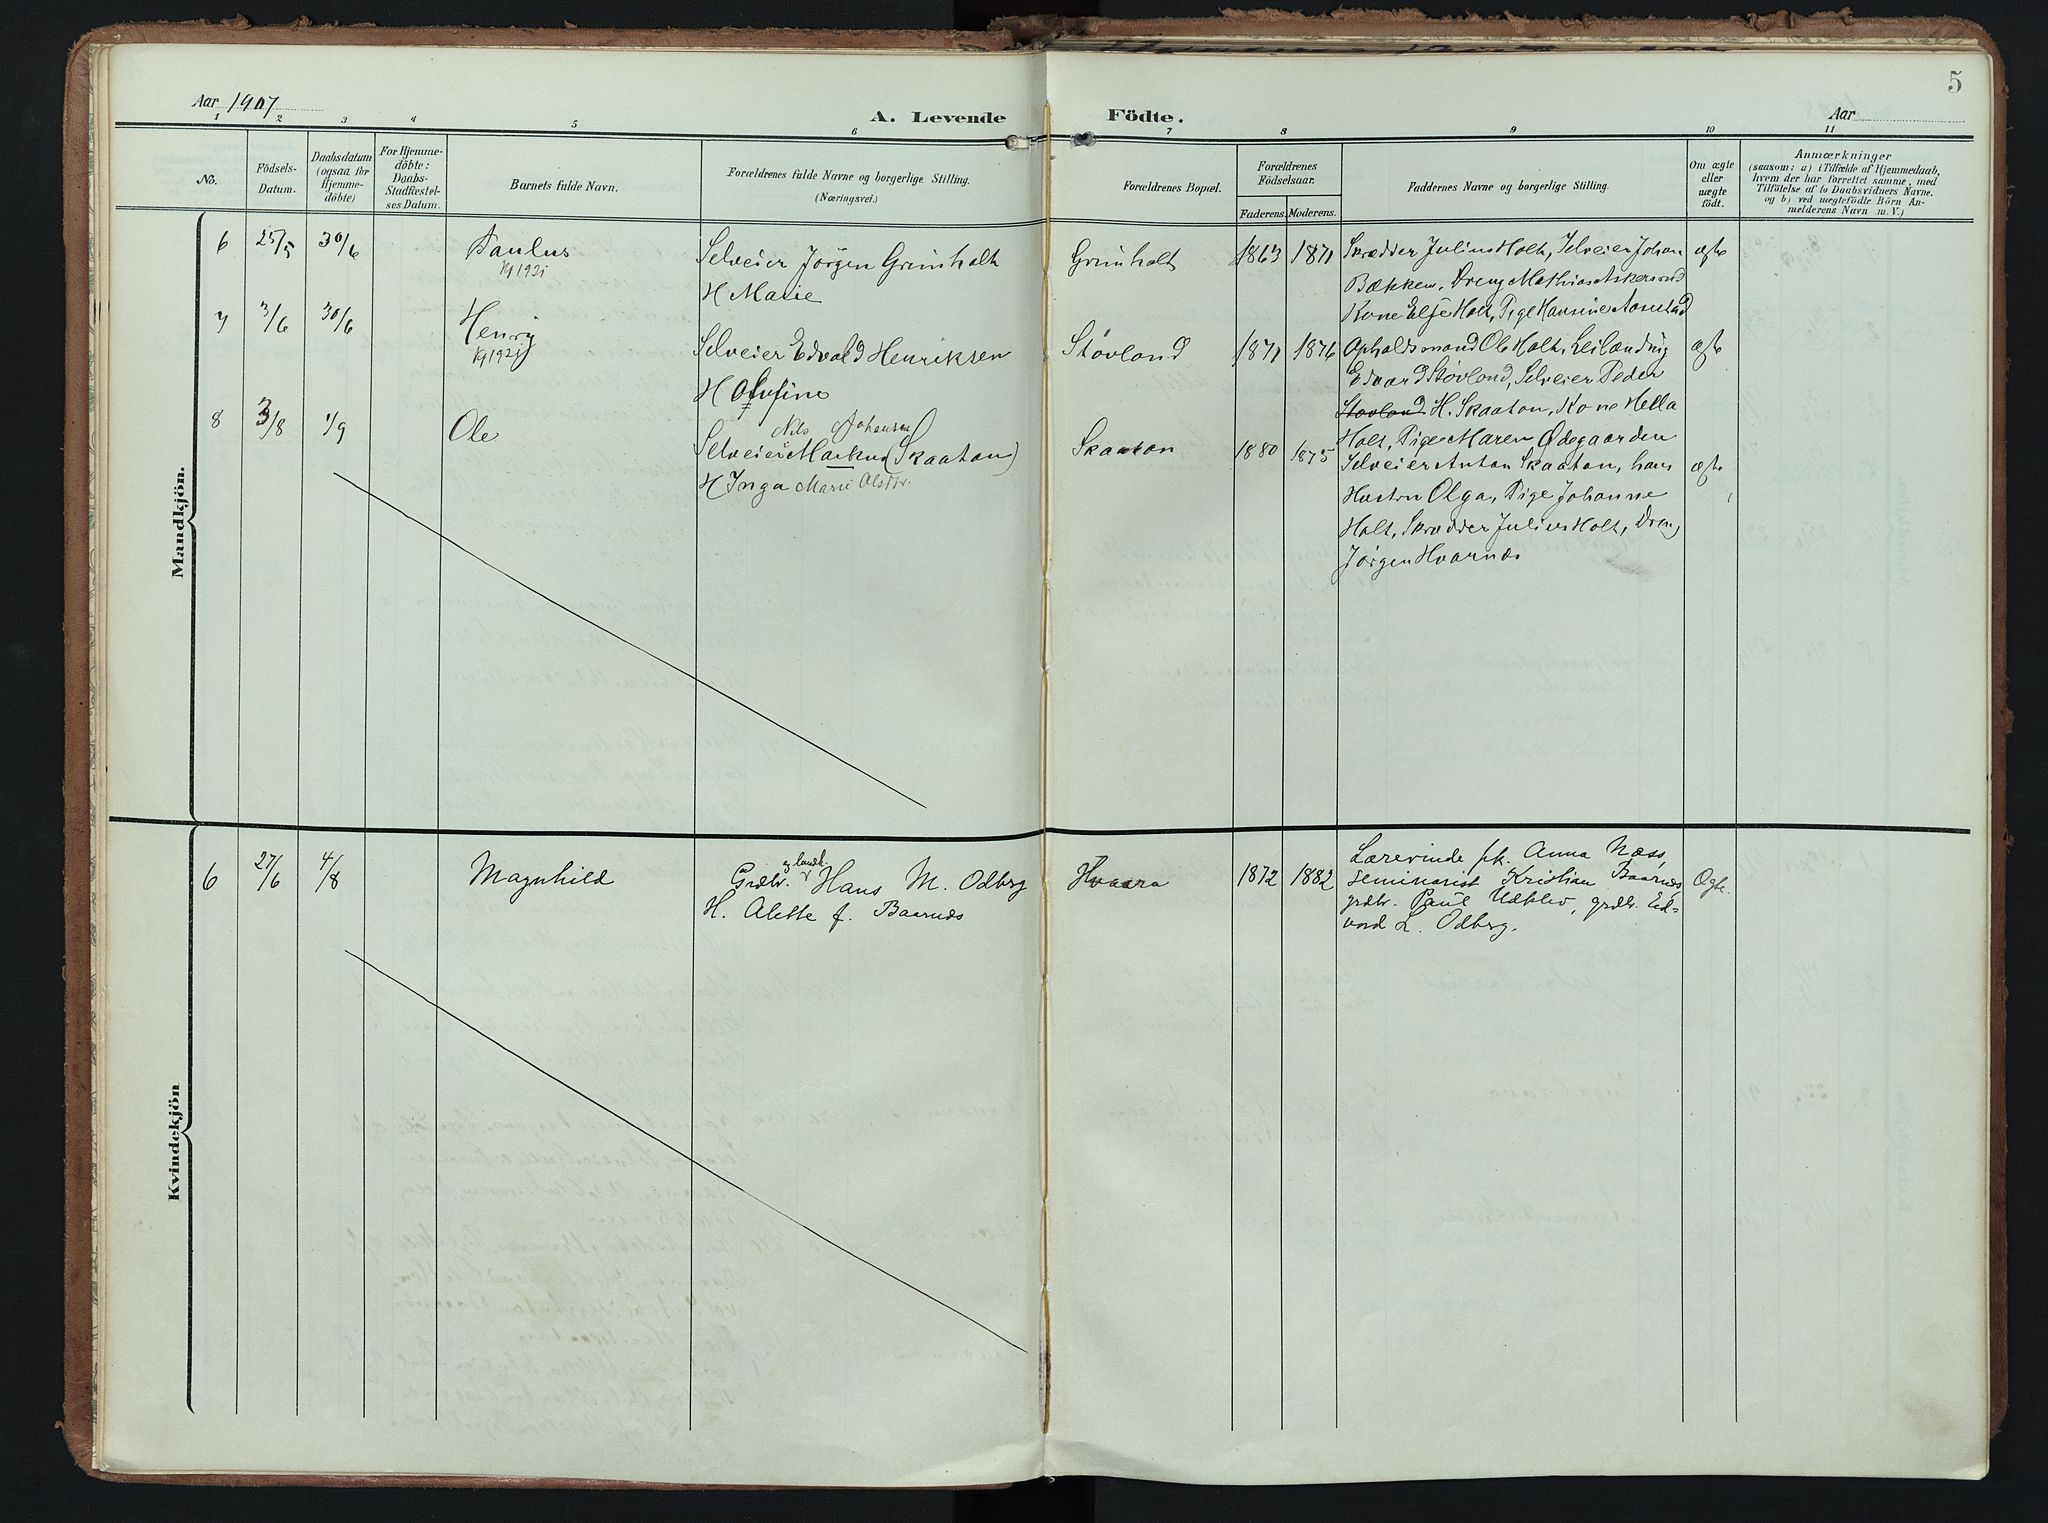 5
Aar 1907
A. Levende Födte.
Aar
1 2 3 4 5 6 7 8 9 10 11
No.
Födsels-
Datum.
Daabsdatum
(ogsaa for
Hjemme-
döbte)
For Hjemme-
döbte:
Daabs-
Stadfæstel-
ses Datum.
Barnets fulde Navn.
Forældrenes fulde Navne og borgerlige Stilling.
(Næringsvei.)
Forældrenes Bopæl.
Forældrenes
Födselsaar.
Faderens. Moderens.
Faddernes Navne og borgerlige Stilling.
Om ægte
eller
uægte
födt.
Anmærkninger
(saasom: a) i Tilfælde af Hjemmedaab,
hvem der har forrettet samme, med
Tilföielse af to Daabsvidners Navne.
og b) ved uægtefödte Börn An-
melderens Navn m. V.)
Mandkjön.
6 25/5 30/6 Paulus Selveier Jørgen Grimholt Grimholt 1863 1871 Skrædder Julius Holt, Selveier Johan ægte
Kf 1921 H Marie Bækken, Dreng Mathias Askersrud
Kone Else Holt, Pige Hansine Aamstad
7 3/6 30/6 Henry Selveier Edvald Henriksen Støvland 1871 1876 Opholdsmand Ole Holt, Leilænding ægte
Kf 1921 H Olufine Edvard Støvland, Selveier Peder
Støvland H. Skaaton, Kone Hella
Holt, Pige Maren Ødegaarden
8 3/8 1/9 Ole Nils Johansen
Selveier Markus (Skaaton) Skaaton 1880 1875 Selveier Anton Skaaton, hans ægte
H Inga Marie Olsdtr. Hustru Olga, Pige Johanne
Holt, Skrædder Julius Holt, Dreng
Jørgen Hvarnæs
Kvindekjön
6 27/6 4/8 Magnhild Grdbr. og landh. Hans M. Odberg Hvaara 1872 1882 Lærerinde frk. Anna Næss, Ogte.
H. Alette f. Baarnæs seminarist Kristian Baarnæs,
grdbr. Paul Udklev, grdbr. Ed-
vard L. Odberg.